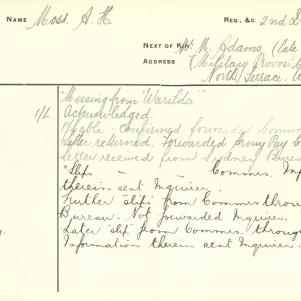 NAME Moss. A. H
REG., &C. 2nd
NEXT OF KIN Mr. M. Adams (late
ADDRESS (Military Provost
North Terrace,
"Missing from 'Warilda'"
1/L Acknowledged.
confirmed. forwarded Commrs
Letter returned. Forwarded Army Pay
Letter received from Sydney Bureau
"Slip " " Commrs. Inf
therein sent Inquirer.
Further slip from Commrs throu
Bureau. Not forwarded Inquirer.
Later slip from Commrs. through
Information therein sent Inquirer.